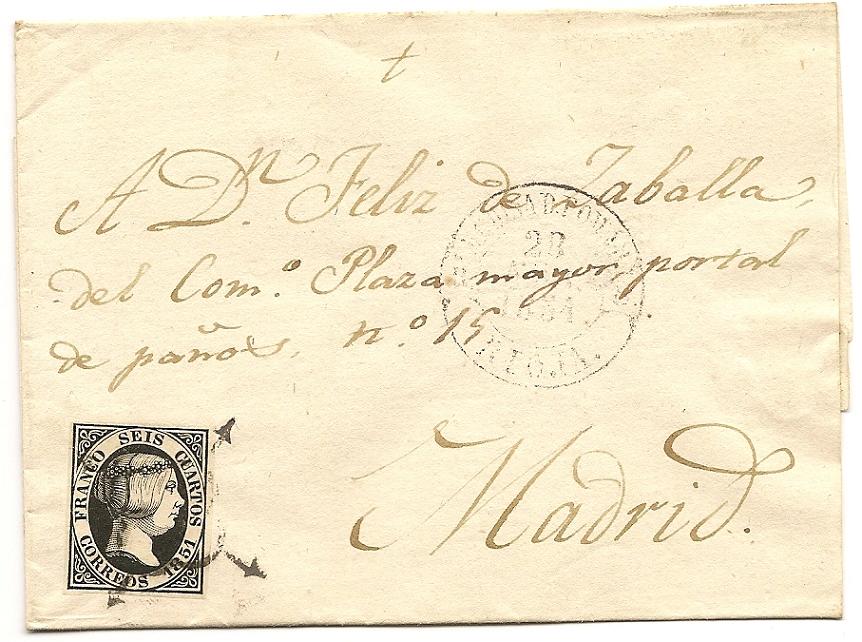 A D.ⁿ Feliz de Zaballa,
del Com.º Plaza mayor, portal
de paños, n.º 15
Madrid.
28
1851
RIOJA.
FRANCO SEIS CUARTOS
CORREOS 1851